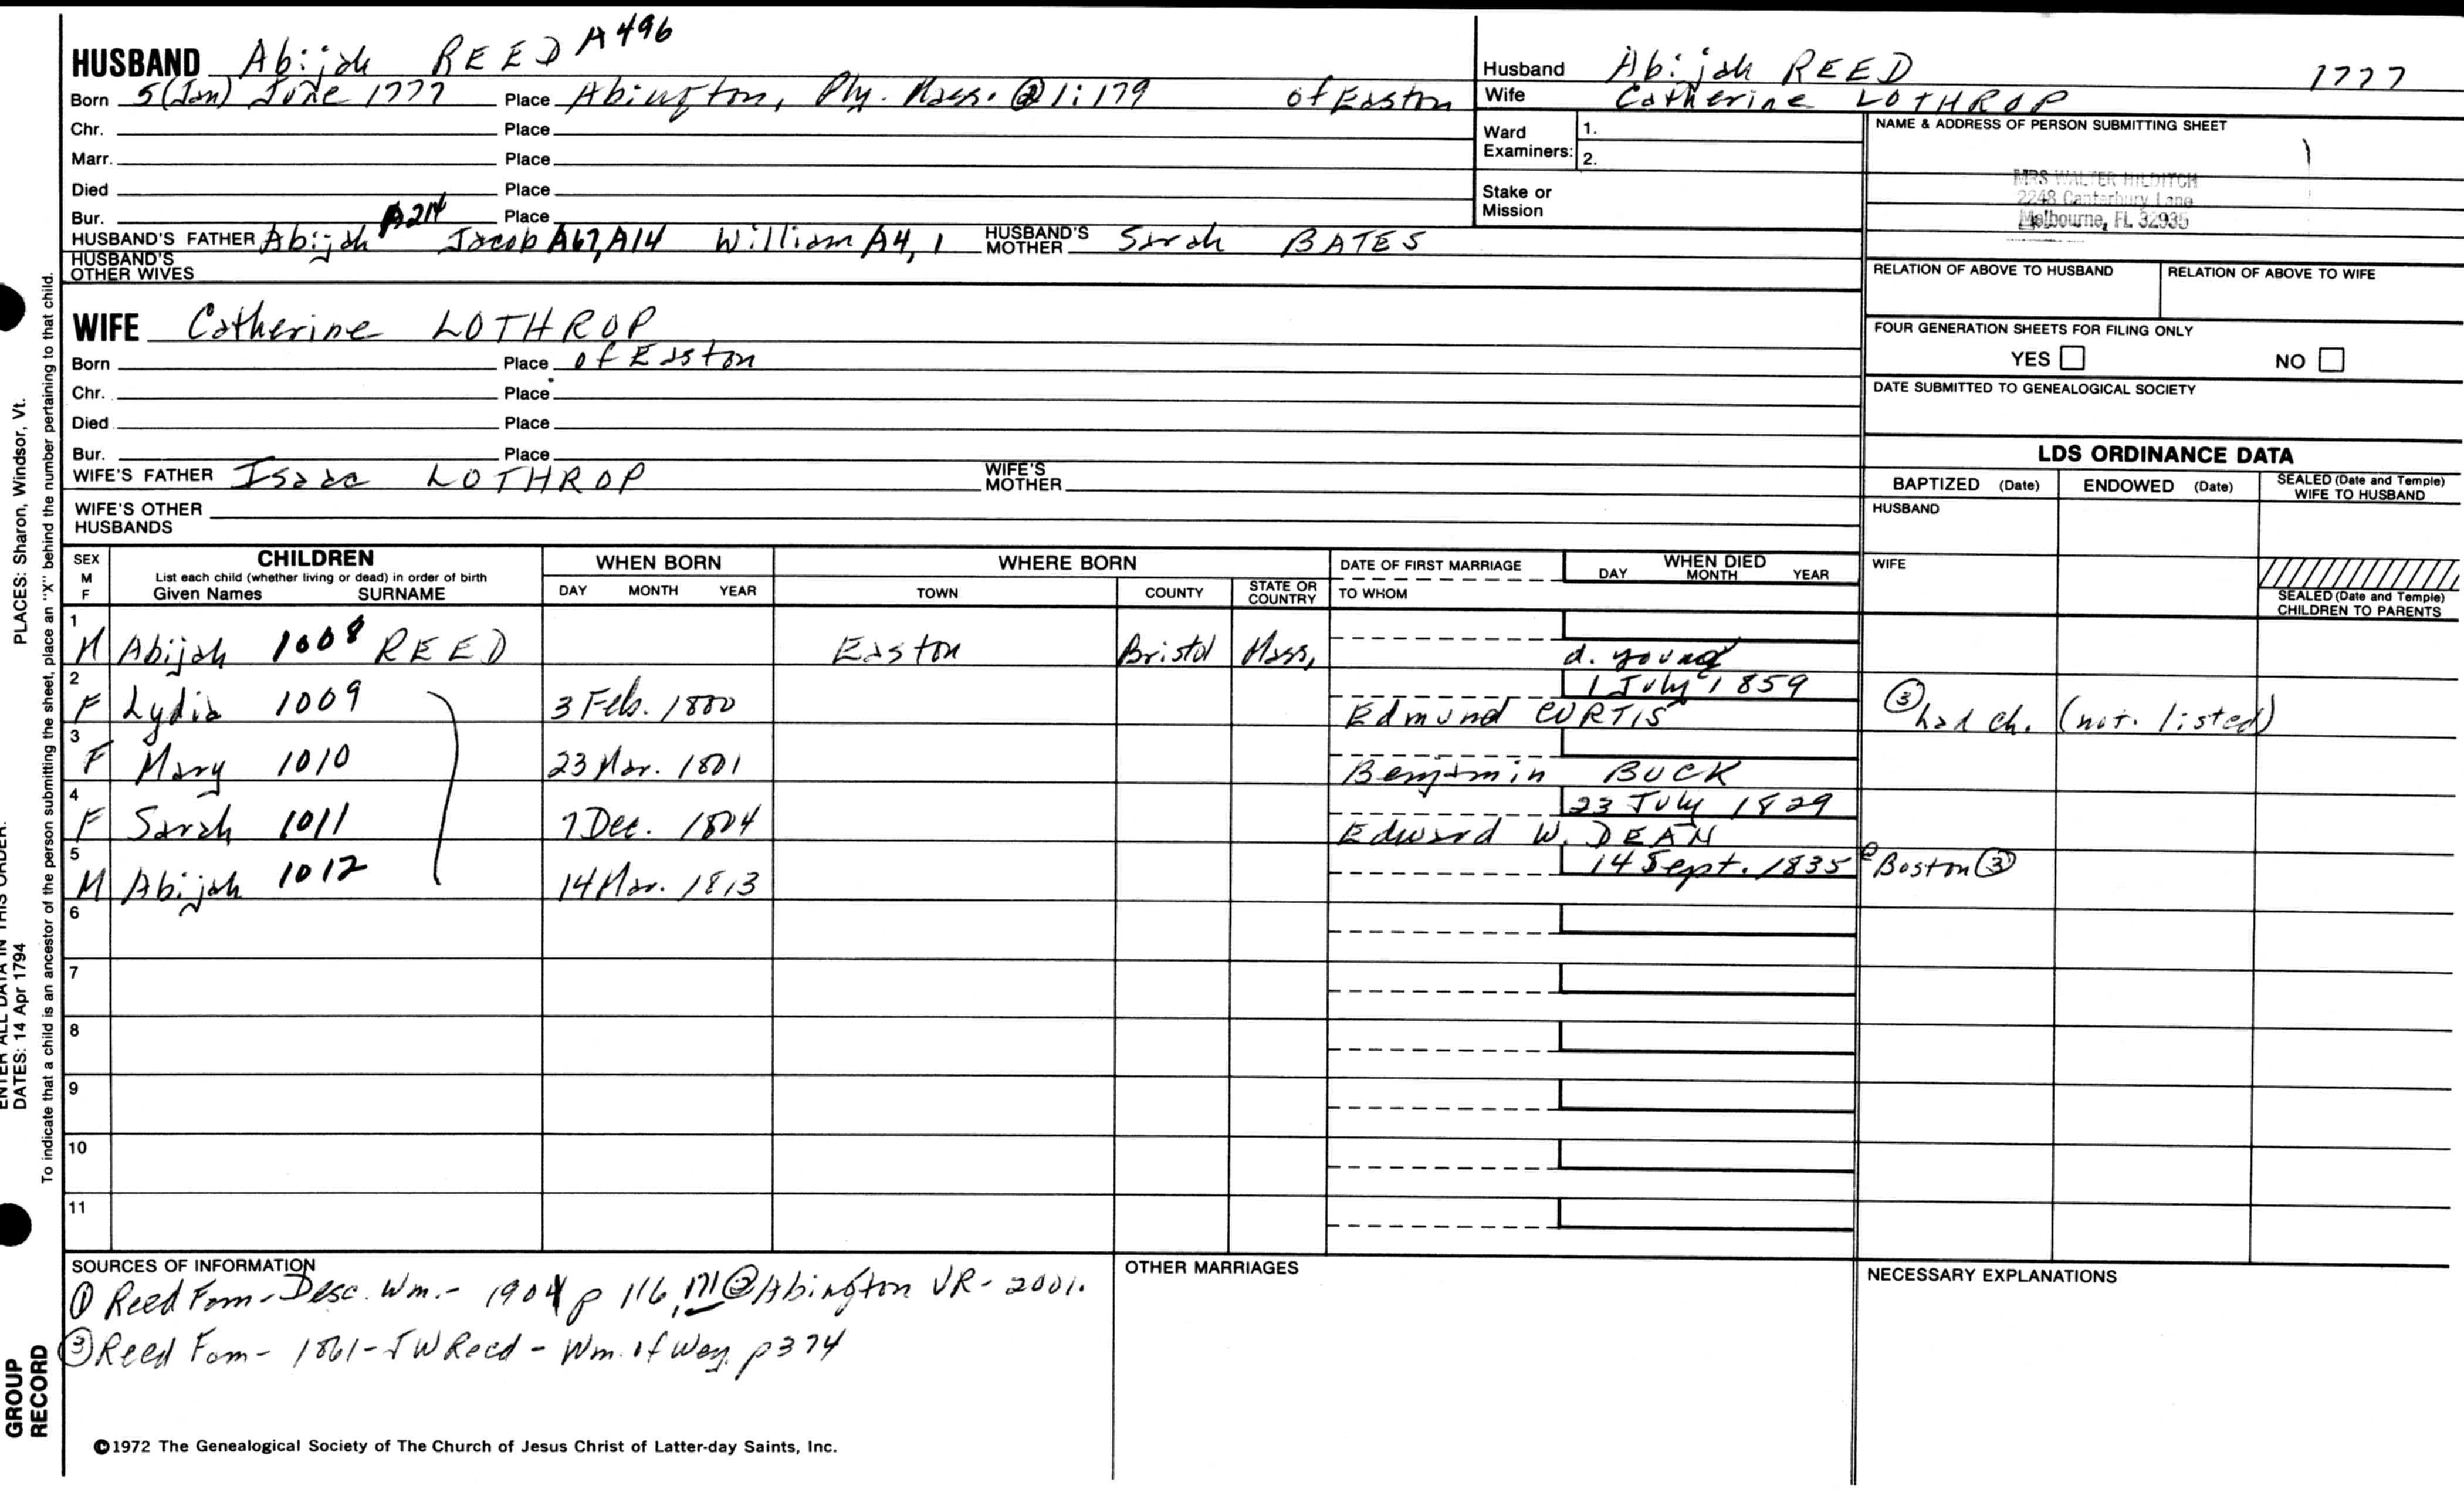 HUSBAND Abijah REED A496
Born 5 (Jan) June 1777 Place Abington, Ply. Mass. @1:179 of Easton
Chr. Place
Marr. Place
Died Place
Bur. Place
HUSBAND'S FATHER Abijah A214 Jacob A67, A14 William A4, 1 HUSBAND'S MOTHER Sarah BATES
HUSBAND'S OTHER WIVES
Husband Abijah REED 1777
Wife Catherine LOTHROP
Ward Examiners: 1.
2.
Stake or Mission
NAME & ADDRESS OF PERSON SUBMITTING SHEET
MRS WALTER HILDITCH
2248 Canterbury Lane
Melbourne, FL 32935
RELATION OF ABOVE TO HUSBAND RELATION OF ABOVE TO WIFE
FOUR GENERATION SHEETS FOR FILING ONLY
YES NO
DATE SUBMITTED TO GENEALOGICAL SOCIETY
WIFE Catherine LOTHROP
Born Place of Easton
Chr. Place
Died Place
Bur. Place
WIFE'S FATHER Isaac LOTHROP WIFE'S MOTHER
WIFE'S OTHER HUSBANDS
LDS ORDINANCE DATA
BAPTIZED (Date) ENDOWED (Date) SEALED (Date and Temple) WIFE TO HUSBAND
HUSBAND
WIFE
SEALED (Date and Temple) CHILDREN TO PARENTS
SEX M F CHILDREN List each child (whether living or dead) in order of birth Given Names SURNAME WHEN BORN DAY MONTH YEAR WHERE BORN TOWN COUNTY STATE OR COUNTRY DATE OF FIRST MARRIAGE TO WHOM WHEN DIED DAY MONTH YEAR
1 M Abijah 1008 REED Easton Bristol Mass. d. young
2 F Lydia 1009 3 Feb. 1800 Edmund CURTIS 1 July 1859 ③ had ch. (not. listed)
3 F Mary 1010 23 Mar. 1801 Benjamin BUCK
4 F Sarah 1011 7 Dec. 1804 Edward W. DEAN 23 July 1829
5 M Abijah 1012 14 Mar. 1813 14 Sept. 1835 @ Boston ③
6
7
8
9
10
11
SOURCES OF INFORMATION
① Reed Fam - Desc. Wm. - 1904 p 116, 171 ② Abington VR - 2001.
③ Reed Fam - 1861 - JW Reed - Wm. of Wey. p374
OTHER MARRIAGES
NECESSARY EXPLANATIONS
©1972 The Genealogical Society of The Church of Jesus Christ of Latter-day Saints, Inc.
PLACES: Sharon, Windsor, Vt.
To indicate that a child is an ancestor of the person submitting the sheet, place an "X" behind the number pertaining to that child.
ENTER ALL DATA IN THIS ORDER:
DATES: 14 Apr 1794
GROUP RECORD